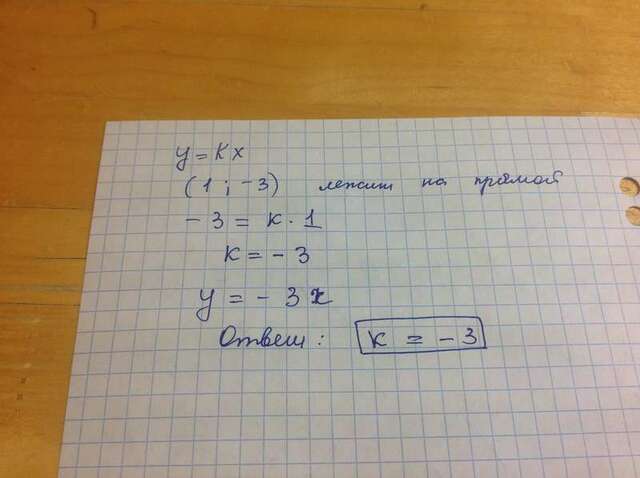 y = kx
(1 ; -3) лежит на прямой
-3 = k · 1
k = -3
y = -3x
Ответ: k = -3